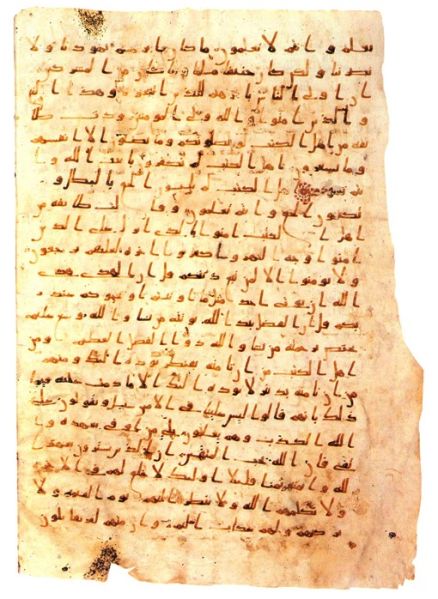 يعلم وانتم لا تعلمون ما كان ابرهيم يهوديا ولا
نصرنيا ولكن كان حنيفا مسلما وما كان من المشركين
ان اولى الناس بابرهيم للذين اتبعوه وهذا النبى
والذين امنوا والله ولى المومنين ودت طا
ئفه من اهل الكتب لو يضلونكم وما يضلون الا انفسهم
وما يشعرون يا اهل الكتب لم تكفرون بايت الله وا
نتم تشهدون يا اهل الكتب لم تلبسون الحق بالبطل و
تكتمون الحق وانتم تعلمون وقالت طائفه من
اهل الكتب امنوا بالذى انزل على الذين
امنوا وجه النهر واكفروا اخره لعلهم يرجعون
ولا تومنوا الا لمن تبع دينكم قل ان الهدى هدى
الله ان يوتى احد مثل ما اوتيتم او يحاجوكم عند ر
بكم قل ان الفضل بيد الله يوتيه من يشا والله وسع عليم
يختص برحمته من يشا والله ذو الفضل العظيم ومن
اهل الكتب من ان تامنه بقنطر يوده اليك ومنهم
من ان تامنه بدينر لا يوده اليك الا ما دمت عليه قيما
ذلك بانهم قالوا ليس علينا فى الامين سبيل ويقولون على
الله الكذب وهم يعلمون بلى من اوفى بعهده وا
تقى فان الله يحب المتقين ان الذين يشترون بعهد ا
لله وايمنهم ثمنا قليلا اولئك لا خلق لهم فى الاخره
ولا يكلمهم الله ولا ينظر اليهم يوم القيمه ولا
يزكيهم ولهم عذاب اليم وان منهم لفريقا يلون